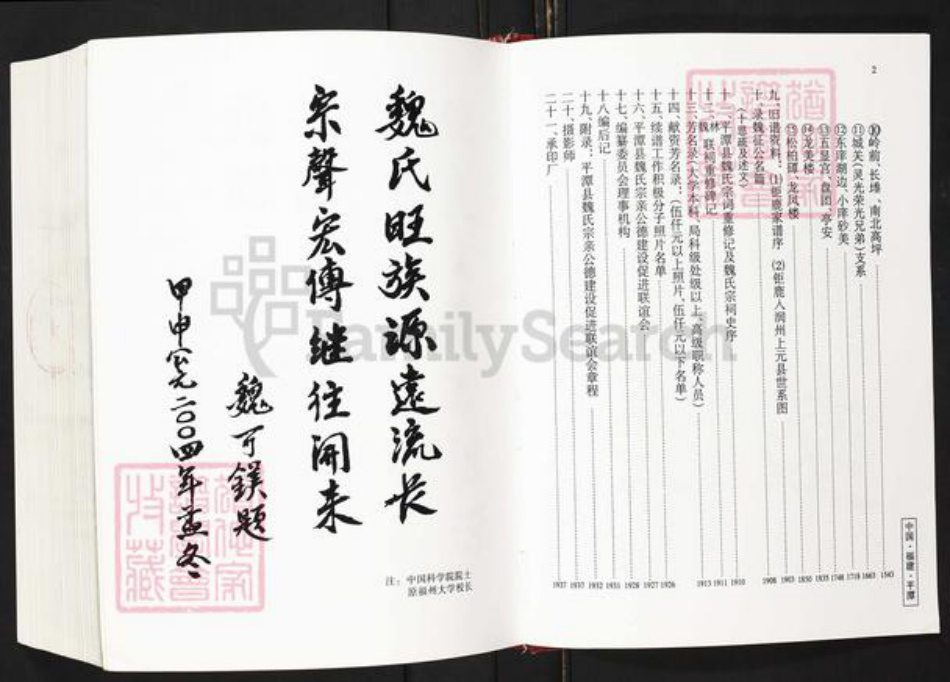 魏氏旺族源遠流长
宗聲宏傳继往開来
魏可鎂題
甲申二〇〇四年孟冬
注：中国科学院院士
原福州大学校长
FamilySearch
2
⑩岭前、长㙩、南北高坪 1543
⑪城关(灵光荣光兄弟)支系 1663
⑫东庠湖边、小庠砂美 1718
⑬五显宫、盘团、亭安 1748
⑭龙美楼 1835
⑮松柏礑、龙凤楼 1850
九、旧谱资料：⑴钜鹿家谱序 ⑵钜鹿人润州上元县世系图 1903
十、录魏征公名篇 1908
(十思疏及述文)
十一、平潭县魏氏宗词重修记及魏氏宗祠史序 1910
十二、魏林联祠重修碑记 1911
十三、芳名录(大学本科、局科级处级以上、高级职称人员) 1913
十四、献资芳名录：(伍仟元以上照片、伍仟元以下名单) 1926
十五、续谱工作积极分子照片名单 1927
十六、平潭县魏氏宗亲公德建设促进联谊会 1928
十七、编纂委员会理事机构 1931
十八编后记 1932
十九、附录：平潭县魏氏宗亲公德建设促进联谊会章程 1933
二十、摄影师 1937
二十一、承印厂
中国·福建·平潭